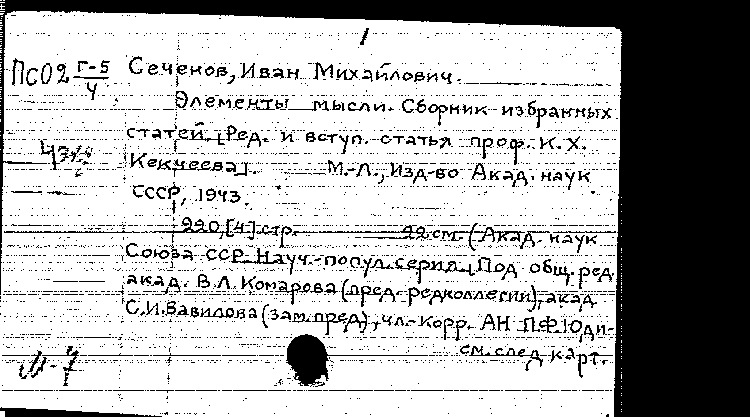 1
ПС02 Г-5/4 Сеченов, Иван Михайлович.
Элементы мысли. Сборник избранных
статей. [Ред. и вступ. статья проф. К. Х.
Кекчеева]. М.-Л., Изд-во Акад. наук
СССР, 1943.
220, [4] стр. 22 см. (Акад. наук
Союза ССР. Науч.-попул. серия. [Под общ. ред.
акад. В.Л. Комарова (пред. редколлегии), акад.
С.И. Вавилова (зам. пред.), чл.-корр. АН П.Ф. Юди-
см. след. карт.